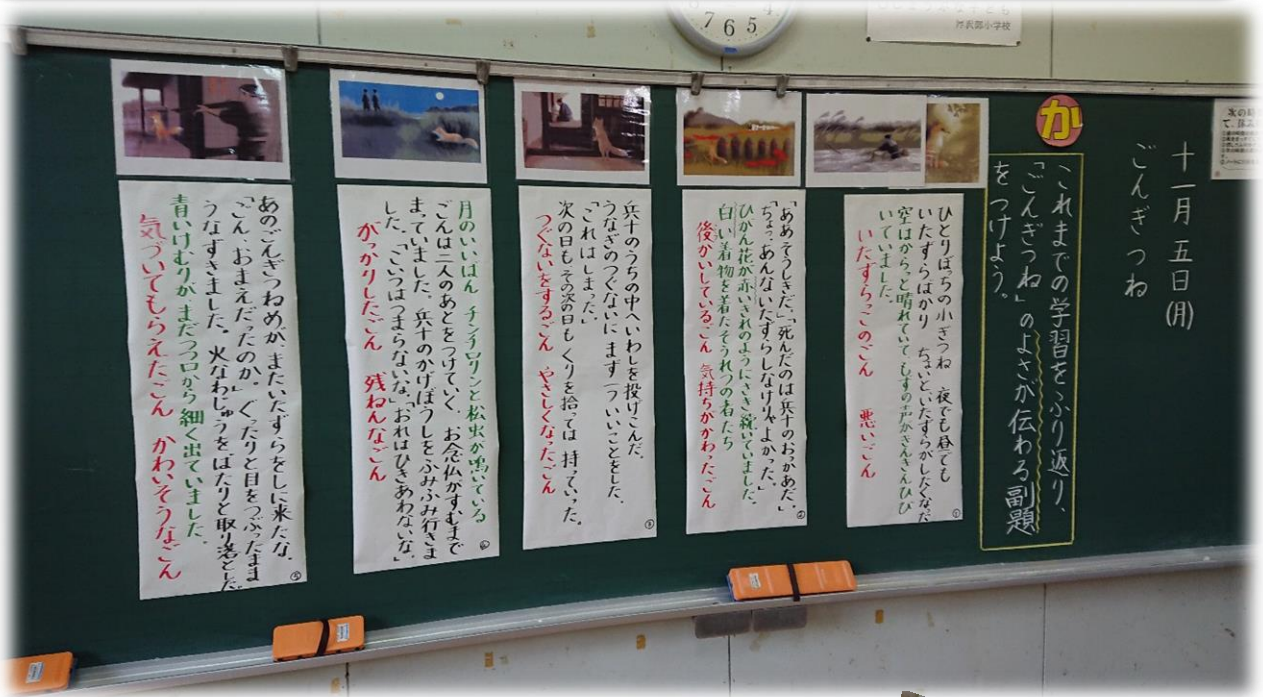 十一月五日(月)
ごんぎつね
か
これまでの学習をふり返り、
「ごんぎつね」のよさが伝わる副題
をつけよう。
ひとりぼっちの小ぎつね 夜でも昼でも
いたずらばかり ちょいといたずらがしたくなった
空はからっと晴れていて、もずの声がきんきんひび
いていました。
いたずらっこのごん 悪いごん
①
「ああ、そうしきだ。」「死んだのは兵十のおっかあだ。」
「ちょっ、あんないたずらしなけりゃよかった。」
ひがん花が赤いきれのようにさき続いていました。
白い着物を着たそうれつの者たち
後かいしているごん 気持ちがかわったごん
②
兵十のうちの中へいわしを投げこんだ。
うなぎのつぐないに まず一つ いいことをした。
「これはしまった。」
次の日も その次の日も くりを拾っては 持っていった。
つぐないをするごん やさしくなったごん
③
月のいいばん チンチロリンと松虫が鳴いている
ごんは二人のあとをつけていく。お念仏がすむまで
まっていました。兵十のかげぼうしをふみふみ行きま
した。「こいつはつまらないな。」「おれはひきあわないな。」
がっかりしたごん 残ねんなごん
④
あのごんぎつねめが、またいたずらをしに来たな。
「ごん、おまえだったのか。」ぐったりと目をつぶったまま
うなずきました。火なわじゅうをばたりと取り落とした
青いけむりが、まだつつ口から細く出ていました。
気づいてもらえたごん かわいそうなごん
⑤
7 6 5 4
小学校